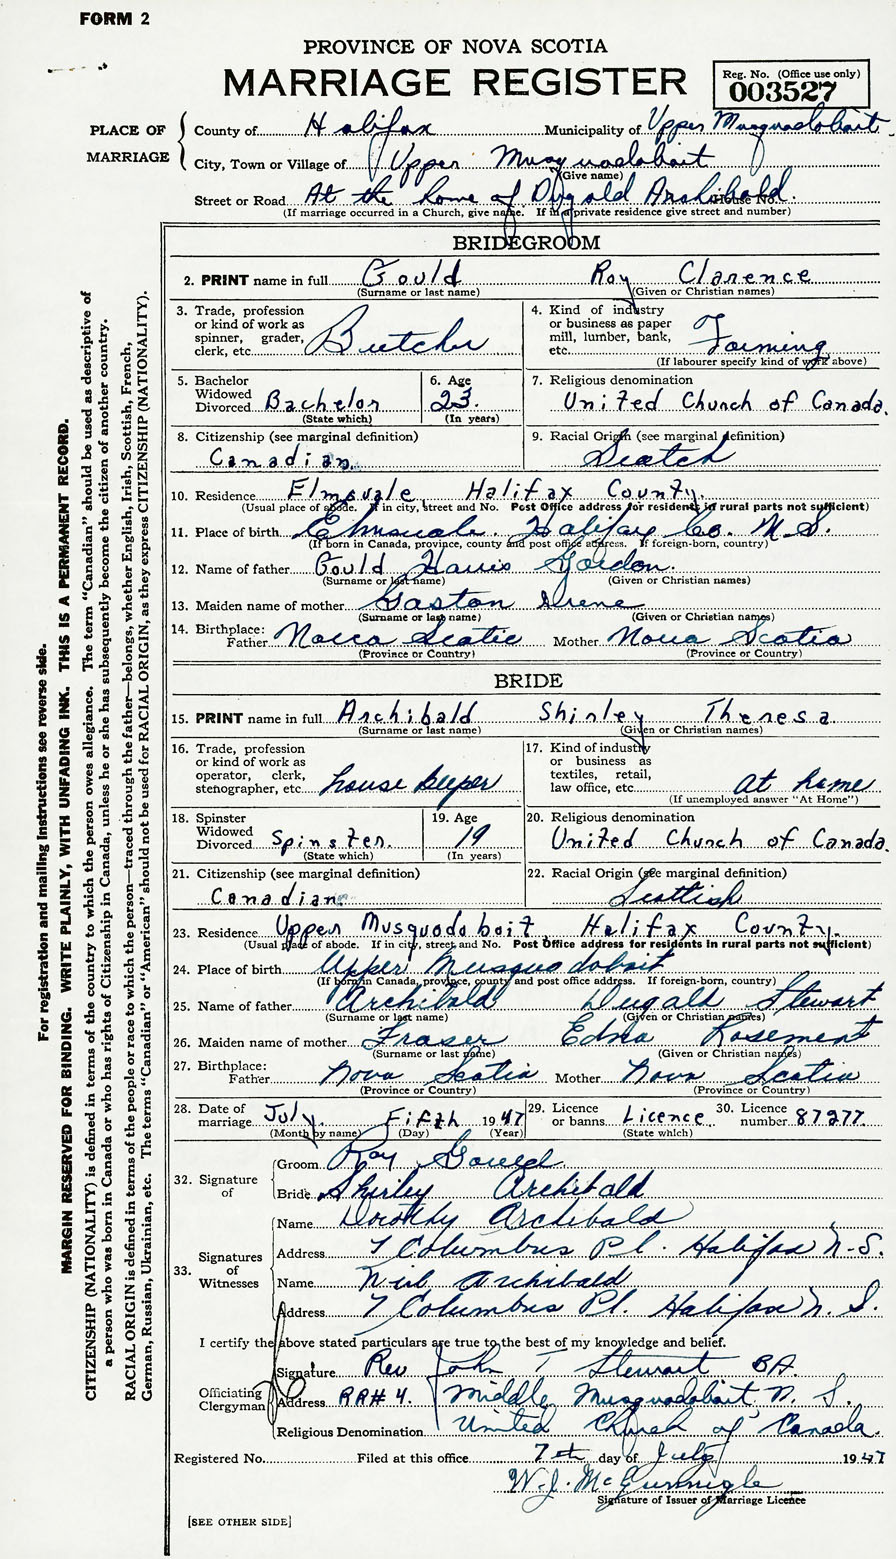 FORM 2
PROVINCE OF NOVA SCOTIA
MARRIAGE REGISTER
Reg. No. (Office use only)
003527
PLACE OF MARRIAGE
County of Halifax Municipality of Upper Musquodoboit
City, Town or Village of Upper Musquodoboit
(Give name)
Street or Road At the home of Dugald Archibald. House No.
(If marriage occurred in a Church, give name. If in a private residence give street and number)
BRIDEGROOM
2. PRINT name in full Gould Roy Clarence
(Surname or last name) (Given or Christian names)
3. Trade, profession or kind of work as spinner, grader, clerk, etc. Butcher
4. Kind of industry or business as paper mill, lumber, bank, etc. Farming
(If labourer specify kind of work above)
5. Bachelor Widowed Divorced Bachelor
(State which)
6. Age 23.
(In years)
7. Religious denomination
United Church of Canada.
8. Citizenship (see marginal definition)
Canadian.
9. Racial Origin (see marginal definition)
Scotch
10. Residence Elmsvale Halifax County.
(Usual place of abode. If in city, street and No. Post Office address for residents in rural parts not sufficient)
11. Place of birth Elmsvale. Halifax Co. N.S.
(If born in Canada, province, county and post office address. If foreign-born, country)
12. Name of father Gould Harris Gordon.
(Surname or last name) (Given or Christian names)
13. Maiden name of mother Gaston Irene
(Surname or last name) (Given or Christian names)
14. Birthplace: Father Nova Scotia Mother Nova Scotia
(Province or Country) (Province or Country)
BRIDE
15. PRINT name in full Archibald Shirley Theresa
(Surname or last name) (Given or Christian names)
16. Trade, profession or kind of work as operator, clerk, stenographer, etc. house keeper
17. Kind of industry or business as textiles, retail, law office, etc. at home
(If unemployed answer "At Home")
18. Spinster Widowed Divorced Spinster.
(State which)
19. Age 19
(In years)
20. Religious denomination
United Church of Canada.
21. Citizenship (see marginal definition)
Canadian
22. Racial Origin (see marginal definition)
Scottish
23. Residence Upper Musquodoboit, Halifax County.
(Usual place of abode. If in city, street and No. Post Office address for residents in rural parts not sufficient)
24. Place of birth Upper Musquodoboit
(If born in Canada, province, county and post office address. If foreign-born, country)
25. Name of father Archibald Dugald Stewart
(Surname or last name) (Given or Christian names)
26. Maiden name of mother Fraser Edna Rosement
(Surname or last name) (Given or Christian names)
27. Birthplace: Father Nova Scotia Mother Nova Scotia
(Province or Country) (Province or Country)
28. Date of marriage July Fifth 1947
(Month by name) (Day) (Year)
29. Licence or banns. Licence.
(State which)
30. Licence number 87277.
32. Signature of
Groom Roy Gould
Bride Shirley Archibald
33. Signatures of Witnesses
Name Dorothy Archibald
Address 7 Columbus Pl. Halifax N.S.
Name Neil Archibald
Address 7 Columbus Pl. Halifax N.S.
I certify the above stated particulars are true to the best of my knowledge and belief.
Officiating Clergyman
Signature Rev John T Stewart BA.
Address RR# 4. Middle Musquodoboit. N. S.
Religious Denomination United Church of Canada.
Registered No. Filed at this office 7th day of July 1947
W.J. McGunnigle
Signature of Issuer of Marriage Licence
[SEE OTHER SIDE]
For registration and mailing instructions see reverse side.
MARGIN RESERVED FOR BINDING. WRITE PLAINLY, WITH UNFADING INK. THIS IS A PERMANENT RECORD.
CITIZENSHIP (NATIONALITY) is defined in terms of the country to which the person owes allegiance. The term "Canadian" should be used as descriptive of
a person who was born in Canada or who has rights of Citizenship in Canada, unless he or she has subsequently become the citizen of another country.
RACIAL ORIGIN is defined in terms of the people or race to which the person—traced through the father—belongs, whether English, Irish, Scottish, French,
German, Russian, Ukrainian, etc. The terms "Canadian" or "American" should not be used for RACIAL ORIGIN, as they express CITIZENSHIP (NATIONALITY).